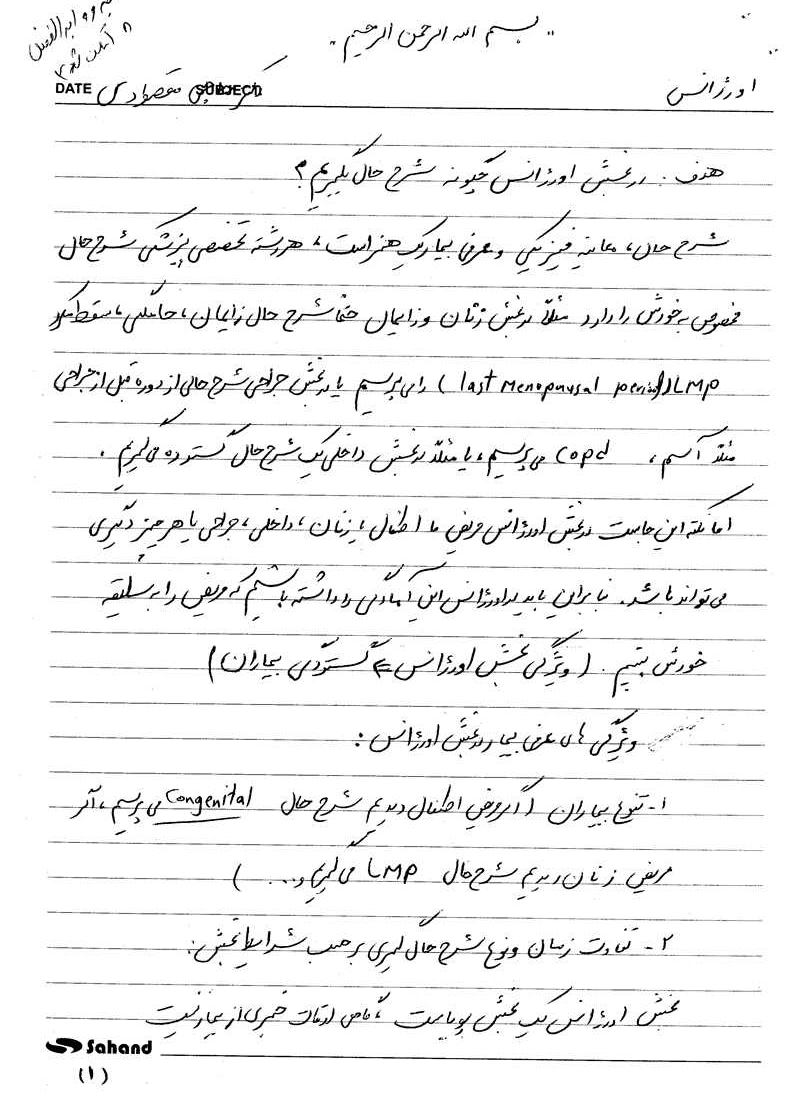 بسم الله الرحمن الرحیم
اورژانس
DATE SUBJECT
هدف : در بخش اورژانس چگونه شرح حال بگیریم ؟
شرح حال ، معاینه فیزیکی و معرفی بیمار یک هنر است ، هر رشته تخصصی پزشکی شرح حال
مخصوص به خودش را دارد مثلاً در بخش زنان و زایمان حتماً شرح حال زایمان ، حاملگی ، سقط
LMP (last Menopausal period) را می پرسیم یا در بخش جراحی شرح حالی از دوره قبل از جراحی
مثلاً آسم ، copd می پرسیم ، یا مثلاً در بخش داخلی یک شرح حال گسترده می گیریم .
اما نکته این جاست در بخش اورژانس مریض ما اطفال ، زنان ، داخلی ، جراحی یا هر چیز دیگری
می تواند باشد . بنابراین باید در اورژانس این آمادگی را داشته باشیم که مریض را به سلیقه
خودش ببینیم . (ویژگی بخش اورژانس ⇐ گستردگی بیماران)
ویژگی های معرفی بیمار در بخش اورژانس :
۱- تنوع بیماران (اگر مریض اطفال دیدیم شرح حال Congenital می پرسیم ، اگر
مریض زنان دیدیم شرح حال LMP می گیریم و ... )
۲- تفاوت زمان و نوع شرح حال گیری بر حسب شرایط بخش :
بخش اورژانس یک بخش پویاست ، گاهی اوقات خبری از بیمار نیست
Sahand
(۱)